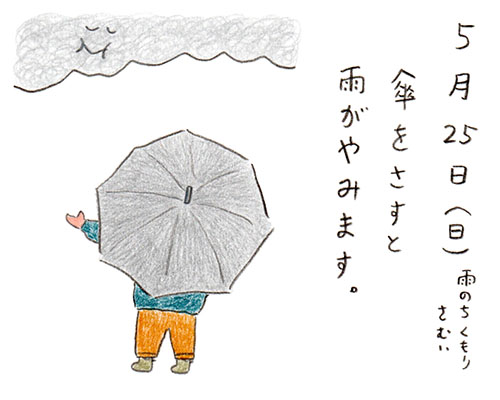 5月25日(日)
雨のちくもり
さむい
傘をさすと
雨がやみます。